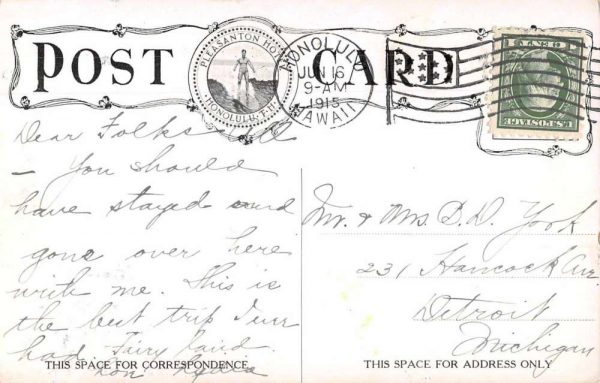 POST CARD
PLEASANTON HOTEL
HONOLULU, T.H.
HONOLULU
JUN 16
9-AM
1915
HAWAII
U.S. POSTAGE
Dear Folks
- You should
have stayed and
gone over here
with me. This is
the best trip I ever
had. Fairy land.
THIS SPACE FOR CORRESPONDENCE
Mr. & Mrs. D. D. York
231 Hancock Ave
Detroit
Michigan
THIS SPACE FOR ADDRESS ONLY